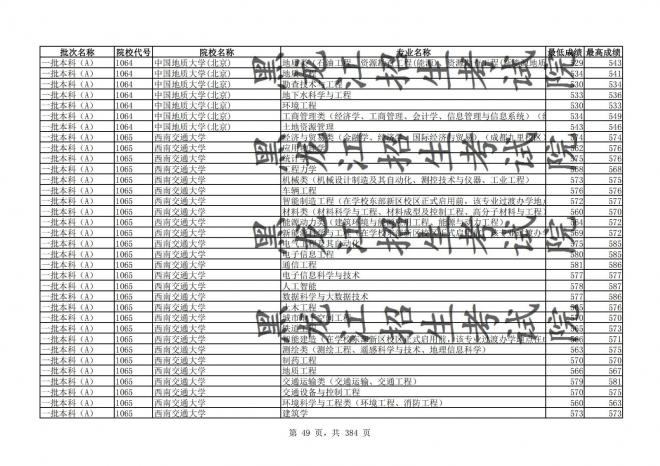 批次名称 院校代号 院校名称 专业名称 最低成绩 最高成绩
一批本科（A） 1064 中国地质大学(北京) 543
一批本科（A） 1064 中国地质大学(北京) 地质 534 541
一批本科（A） 1064 中国地质大学(北京) 勘查技术 工程 530 534
一批本科（A） 1064 中国地质大学(北京) 地下水科学与工程 533 536
一批本科（A） 1064 中国地质大学(北京) 环境工程 530 533
一批本科（A） 1064 中国地质大学(北京) 工商管理类（经济学、工商管理、会计学、信息管理与信息系统） 534 549
一批本科（A） 1064 中国地质大学(北京) 土地资源管理 543 546
一批本科（A） 1065 西南交通大学 经济与贸易类（金融学、经济学、国际经济与贸易）（成都九里校区） 574
一批本科（A） 1065 西南交通大学 应用 576
一批本科（A） 1065 西南交通大学 统计 575 576
一批本科（A） 1065 西南交通大学 工程力学 568 568
一批本科（A） 1065 西南交通大学 机械类（机械设计制造及其自动化、测控技术与仪器、工业工程） 573 575
一批本科（A） 1065 西南交通大学 车辆工程 576
一批本科（A） 1065 西南交通大学 智能制造工程（在学校东部新区校区正式启用前，该专业过渡办学地 572 577
一批本科（A） 1065 西南交通大学 材料类（材料科学与工程、材料成型及控制工程、高分子材料与工程） 570
一批本科（A） 1065 西南交通大学 能源动力类 572
一批本科（A） 1065 西南交通大学 569
一批本科（A） 1065 西南交通大学 电气工程及其自动化 575 585
一批本科（A） 1065 西南交通大学 电子信息工程 580
一批本科（A） 1065 西南交通大学 通信工程 581 586
一批本科（A） 1065 西南交通大学 电子信息科学与技术 577 577
一批本科（A） 1065 西南交通大学 人工智能 578 587
一批本科（A） 1065 西南交通大学 数据科学与大数据技术 577 586
一批本科（A） 1065 西南交通大学 土木工程 576
一批本科（A） 1065 西南交通大学 城市地下空间工程 570 570
一批本科（A） 1065 西南交通大学 铁道工程 573
一批本科（A） 1065 西南交通大学 智能建造 571
一批本科（A） 1065 西南交通大学 测绘类（测绘工程、遥感科学与技术、地理信息科学） 563 575
一批本科（A） 1065 西南交通大学 制药工程 570 570
一批本科（A） 1065 西南交通大学 地质工程 566 567
一批本科（A） 1065 西南交通大学 交通运输类（交通运输、交通工程） 579 581
一批本科（A） 1065 西南交通大学 交通设备与控制工程 570 575
一批本科（A） 1065 西南交通大学 环境科学与工程类（环境工程、消防工程） 560 563
一批本科（A） 1065 西南交通大学 建筑学 573 573
黑龙江招生考试院
黑龙江招生考试院
黑龙江招生考试院
第 49 页，共 384 页